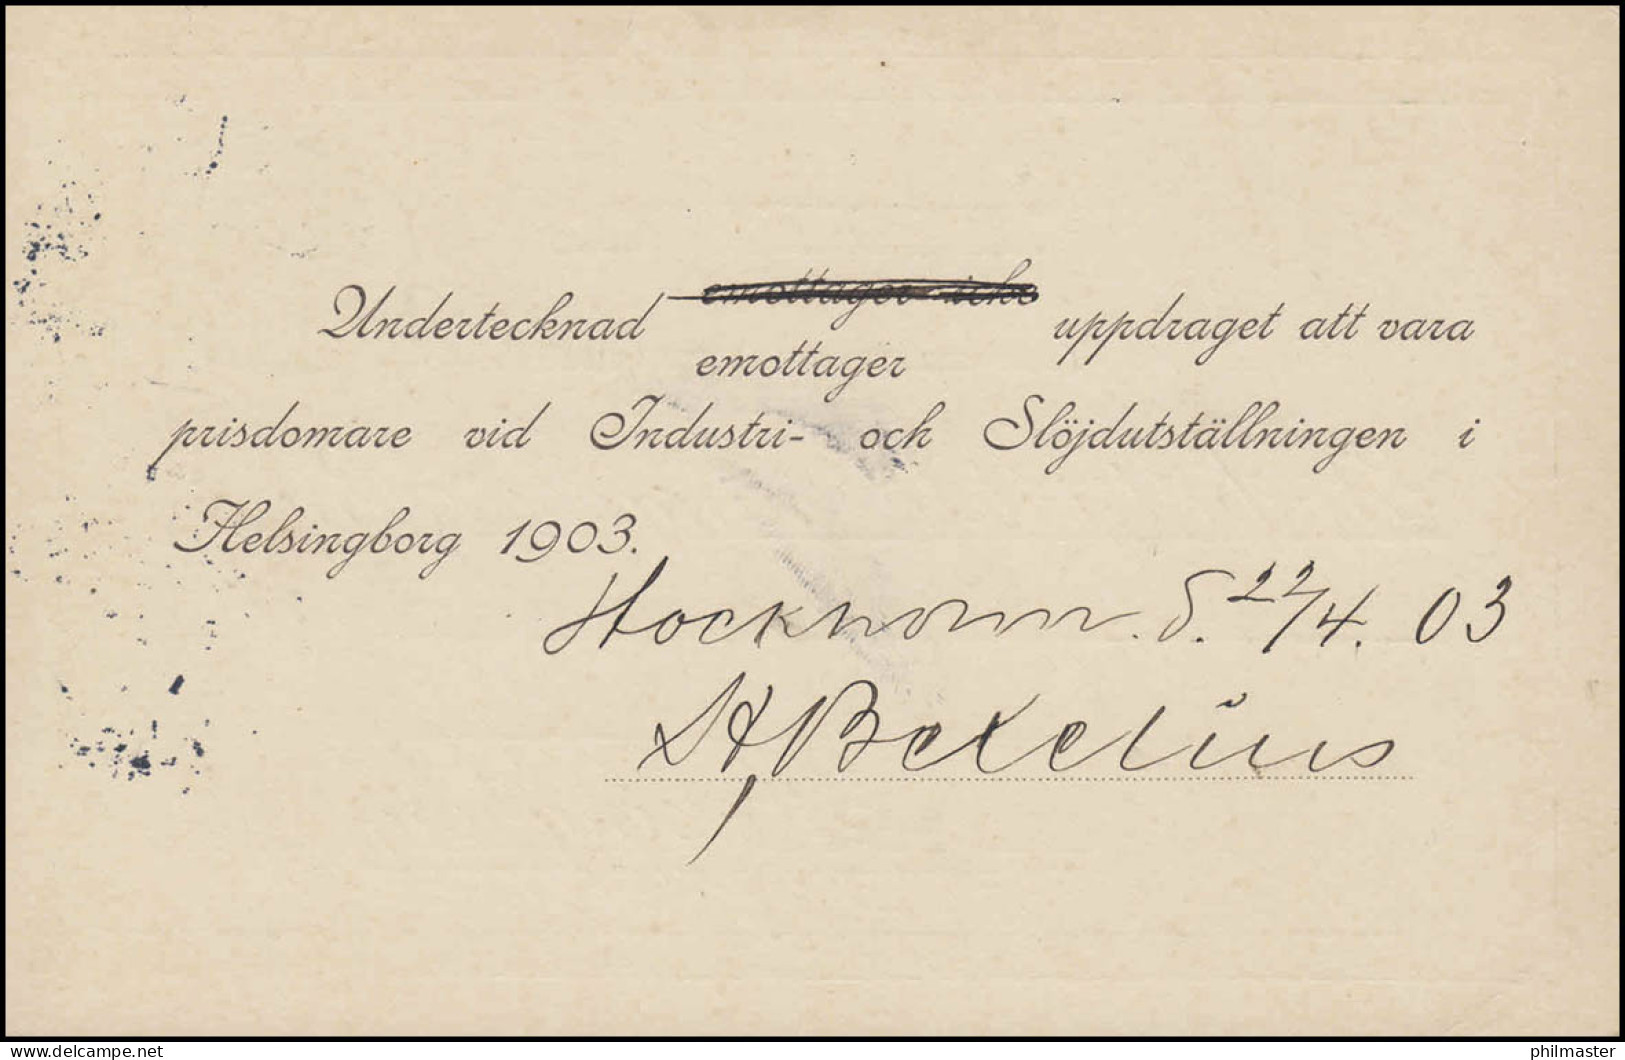 emottager icke
Undertecknad uppdraget att vara
emottager
prisdomare vid Industri- och Slöjdutställningen i
Helsingborg 1903.
Stockholm. d. 22/4. 03
delcampe.net
philmaster